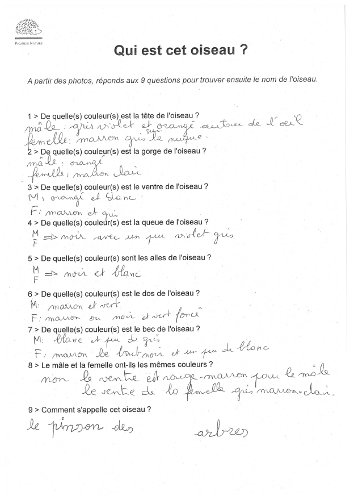 Qui est cet oiseau ?
A partir des photos, réponds aux 9 questions pour trouver ensuite le nom de l'oiseau.
1 > De quelle(s) couleur(s) est la tête de l'oiseau ?
mâle : gris violet et orangé autour de l'œil
femelle: marron gris sur la nuque
2 > De quelle(s) couleur(s) est la gorge de l'oiseau ?
mâle : orangé
femelle: marron clair
3 > De quelle(s) couleur(s) est le ventre de l'oiseau ?
M: orangé et blanc
F: marron et gris
4 > De quelle(s) couleur(s) est la queue de l'oiseau ?
M
F => noir avec un peu violet gris
5 > De quelle(s) couleur(s) sont les ailes de l'oiseau ?
M
F => noir et blanc
6 > De quelle(s) couleur(s) est le dos de l'oiseau ?
M: marron et vert
F: marron ou noir et vert foncé
7 > De quelle(s) couleur(s) est le bec de l'oiseau ?
M: blanc et peu de gris
F: marron le bout noir et un peu de blanc
8 > Le mâle et la femelle ont-ils les mêmes couleurs ?
non le ventre est rouge-marron pour le mâle
le ventre de la femelle gris marron-clair.
9 > Comment s'appelle cet oiseau ?
le pinson des arbres